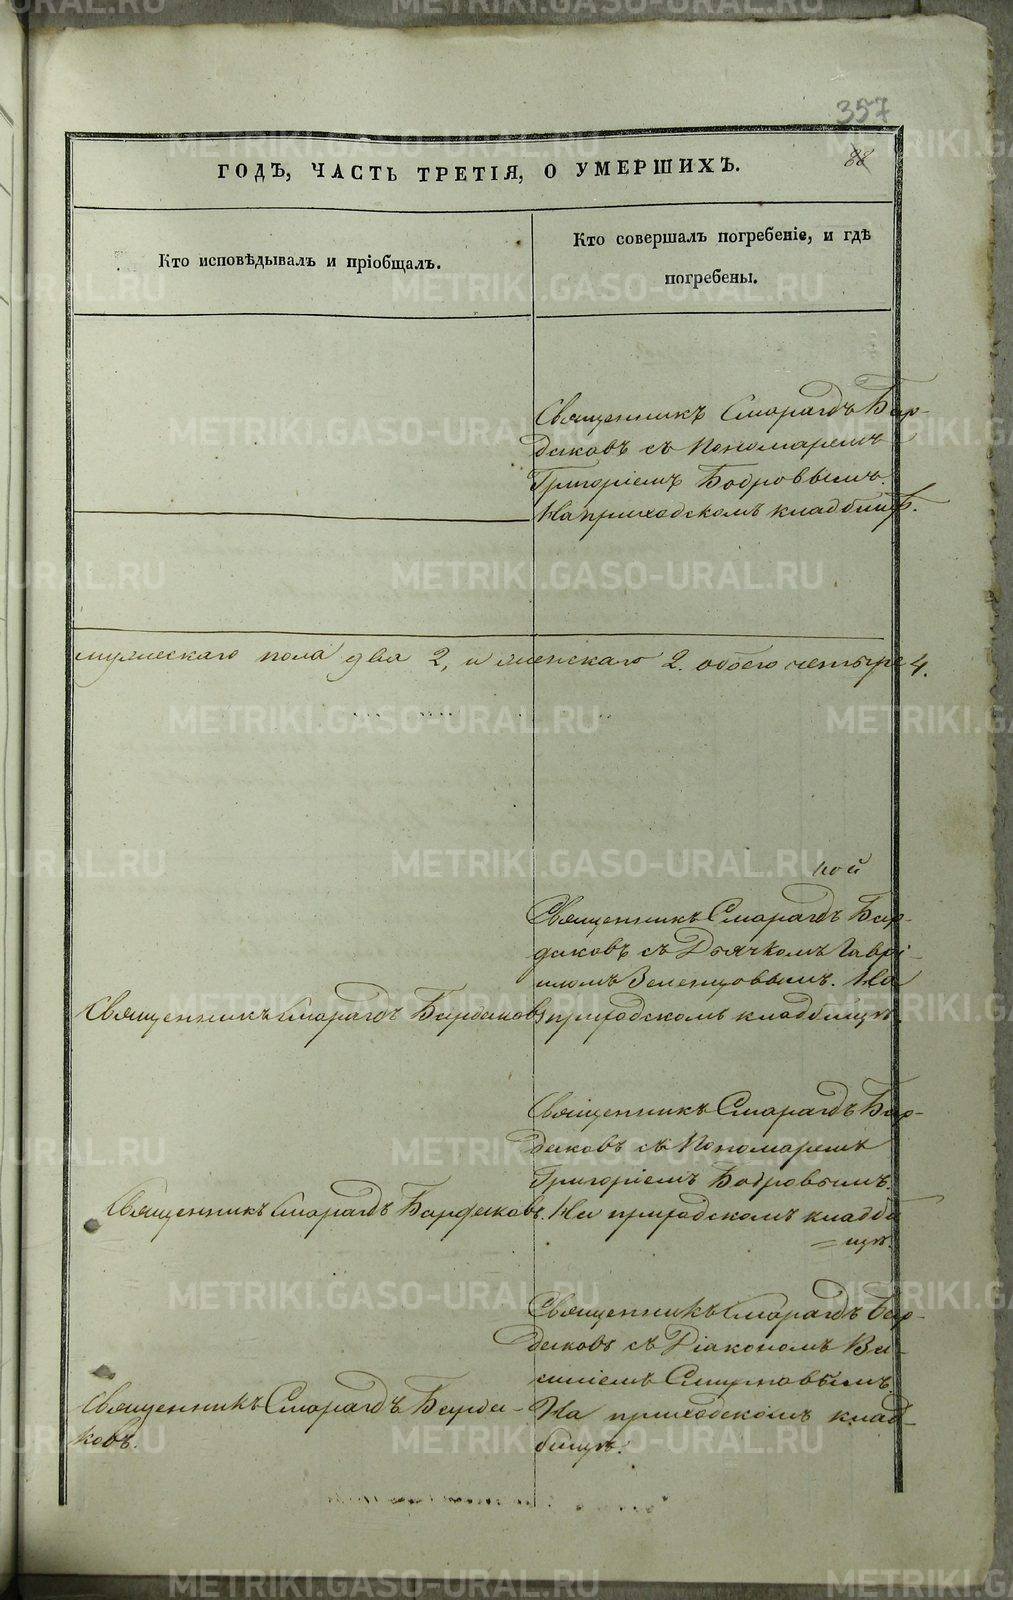 357
88
ГОДЪ, ЧАСТЬ ТРЕТІЯ, О УМЕРШИХЪ.
Кто исповѣдывалъ и пріобщалъ.
Кто совершалъ погребеніе, и гдѣ
погребены.
Священникъ Смарагдъ Бар-
даковъ съ Пономаремъ
Григоріемъ Бобровымъ.
На приходскомъ кладбищѣ.
мужескаго пола два 2, и женскаго 2. обоего четыре 4.
ной
Священникъ Смарагдъ Бар-
даковъ съ Дьячкомъ Гаврі-
иломъ Зеленцовымъ. На
Священникъ Смарагдъ Бардаковъ
приходскомъ кладбищѣ.
Священникъ Смарагдъ Бар-
даковъ съ Пономаремъ
Григоріемъ Бобровымъ.
Священникъ Смарагдъ Бардаковъ.
На приходскомъ кладби
=щѣ.
Священникъ Смарагдъ Бар-
даковъ съ Діакономъ Ва-
силіемъ Смирновымъ.
Священникъ Смарагдъ Барда-
ковъ.
На приходскомъ клад-
бищѣ.
METRIKI.GASO-URAL.RU